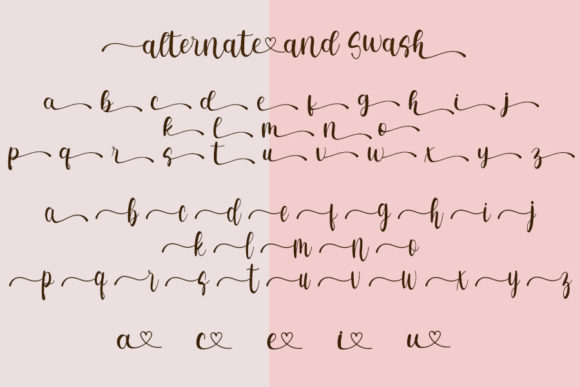 alternate and swash
a b c d e f g h i j
k l m n o
p q r s t u v w x y z
a b c d e f g h i j
k l m n o
p q r s t u v w x y z
a c e i u